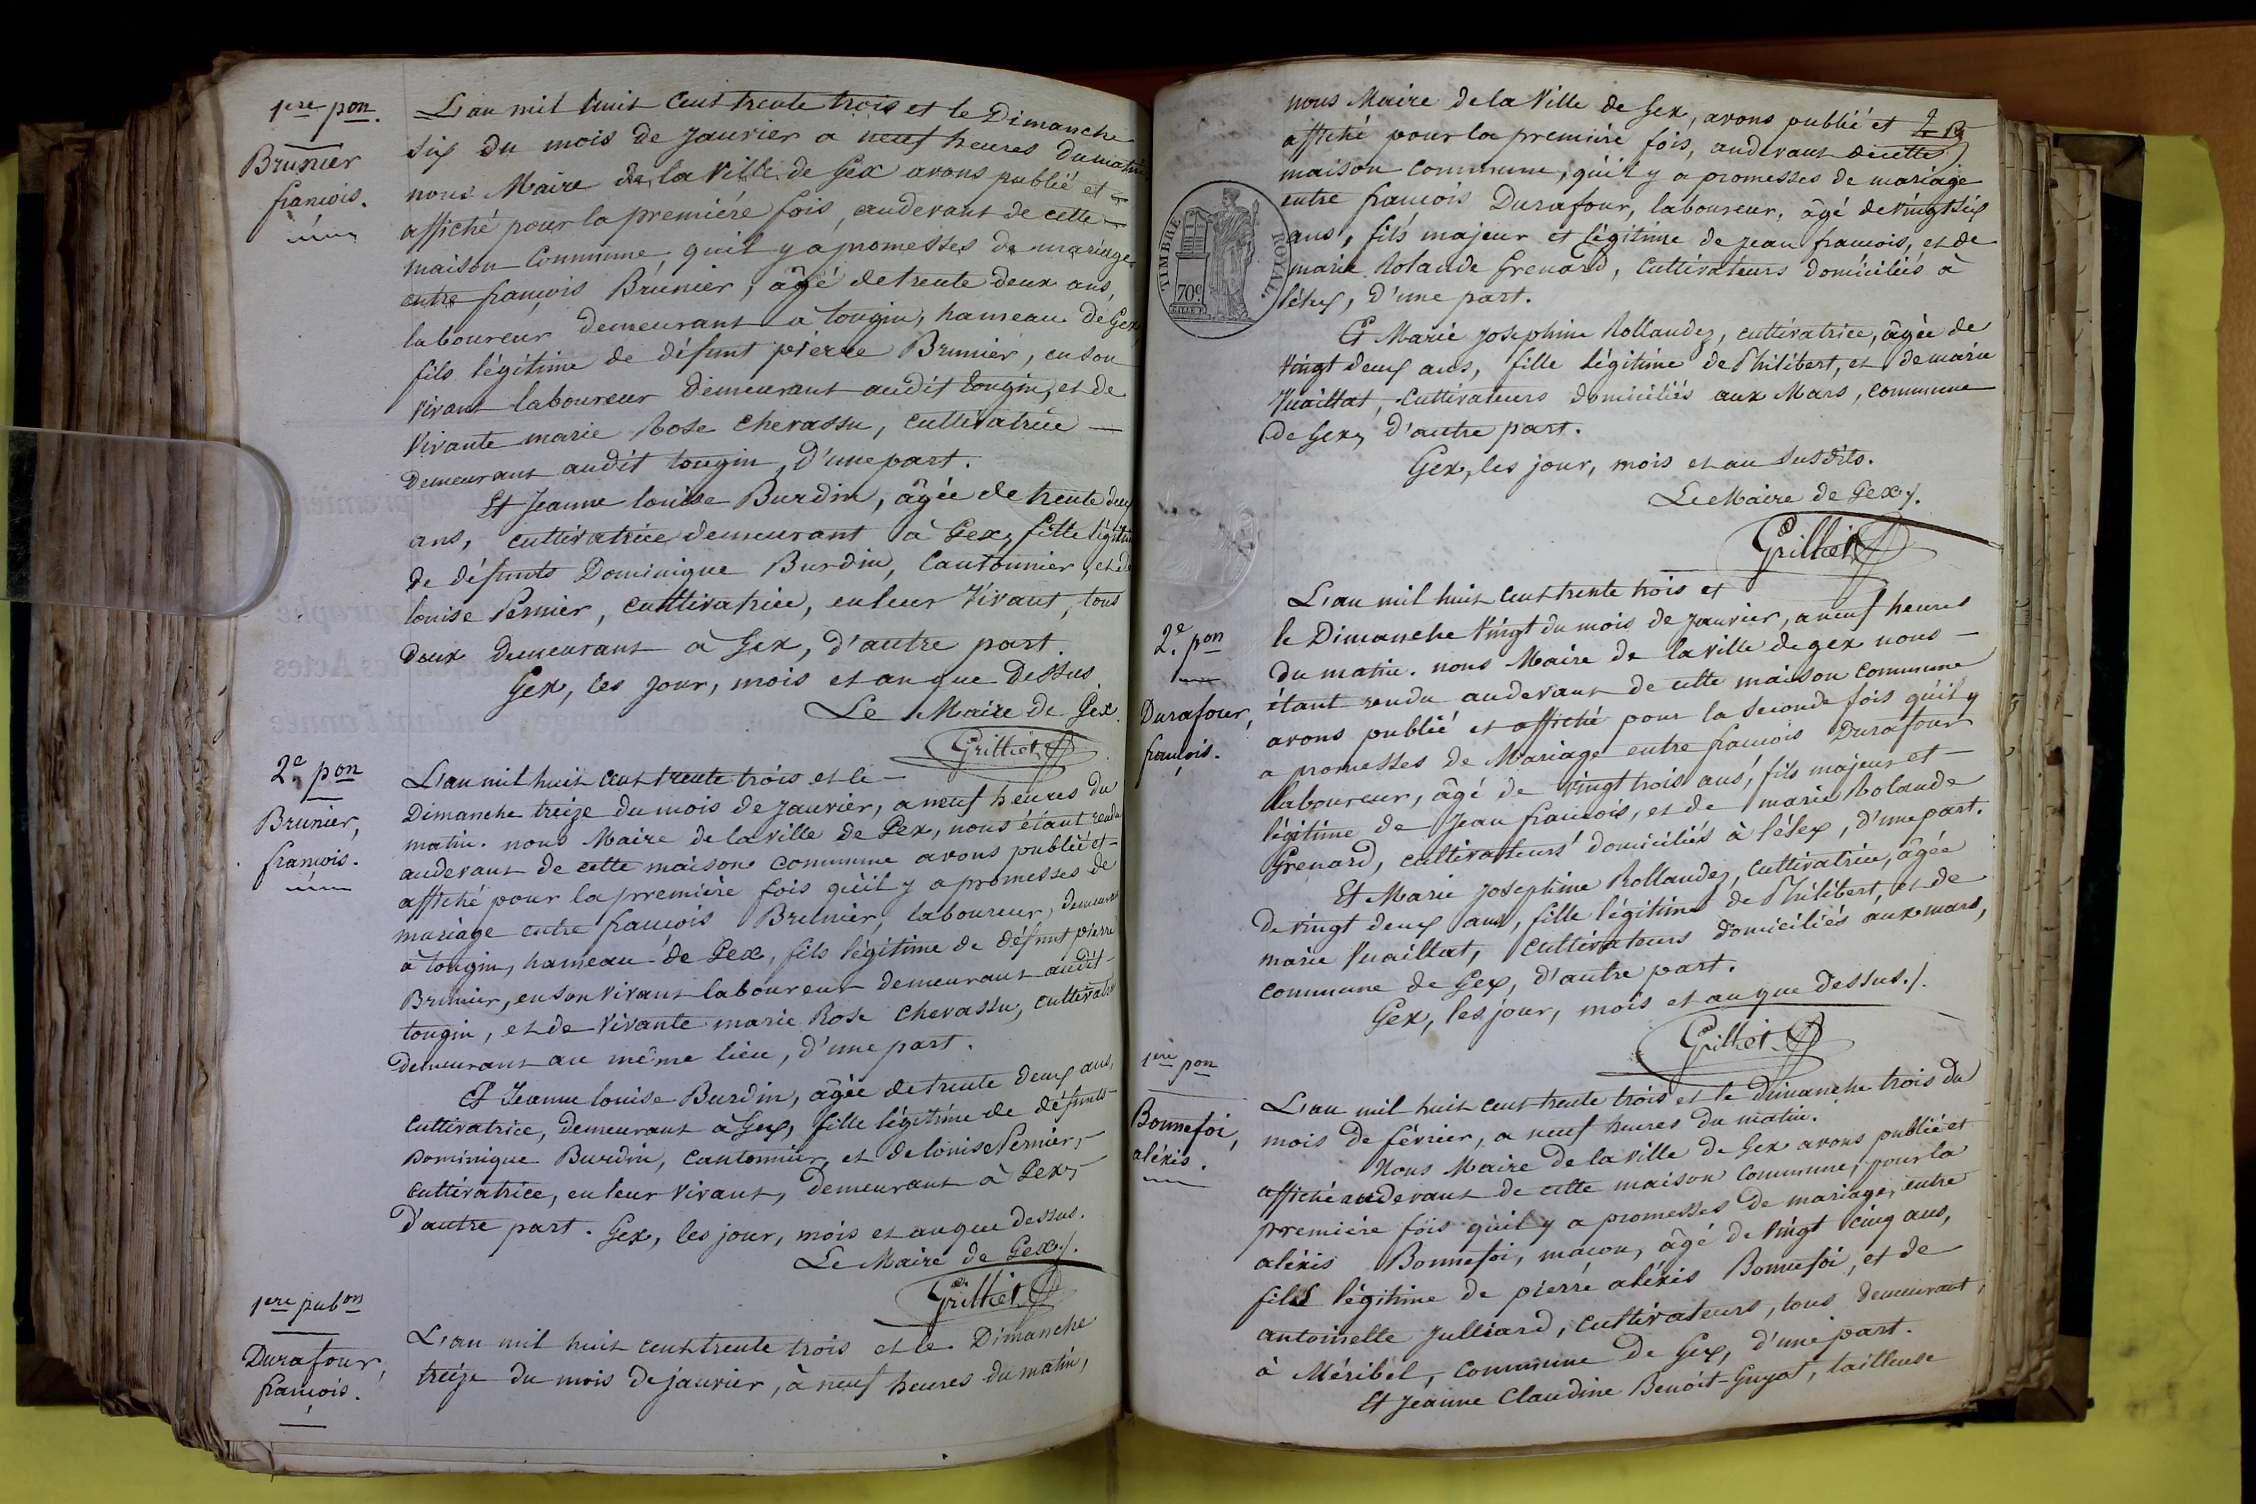 1ere pon.
Brunier
françois.
L'an mil huit cent trente trois et le Dimanche
six du mois de janvier a neuf heures du matin
nous Maire de la Ville de Gex avons publié et
affiché pour la premiére fois, audevant de cette
maison Commune, qu'il y a promesses de mariage
entre françois Brunier, âgé de trente deux ans,
laboureur demeurant a tougin, hameau de Gex,
fils légitime de défunt pierre Brunier, en son
vivant laboureur demeurant audit tougin, et de
vivante marie Rose Chevassu, cultivatrice
demeurant audit tougin, d'une part.
Et Jeanne louise Burdin, âgée de trente deux
ans, cultivatrice demeurant à Gex, fille légitime
de défunts Dominique Burdin, Cantonnier, et de
louise Pernier, cultivatrice, en leur Vivant, tous
deux demeurant à Gex, d'autre part.
Gex, les jour, mois et an que dessus.
Le Maire de Gex.
Grilliet
2e pon
Brunier,
françois.
L'an mil huit cent trente trois et le
Dimanche treize du mois de janvier, a neuf heures du
matin. nous Maire de la ville de Gex, nous étant rendu
audevant de cette maison commune avons publié et
affiché pour la première fois qu'il y a promesses de
mariage entre françois Brunier, laboureur, demeurant
à tougin, hameau de Gex, fils légitime de défunt pierre
Brunier, en son vivant laboureur demeurant audit
tougin, et de vivante marie Rose Chevassu, cultivatrice
demeurant au même lieu, d'une part.
Et Jeanne louise Burdin, âgée de trente deux ans,
Cultivatrice, demeurant à Gex, fille légitime de défunts
Dominique Burdin, Cantonnier, et de louise Pernier,
cultivatrice, en leur vivant, demeurant à Gex,
d'autre part. Gex, les jour, mois et an que dessus.
Le Maire de Gex.
Grilliet
1ere pubon
Durafour,
françois.
L'an mil huit cent trente trois et le Dimanche
treize du mois de janvier, à neuf heures du matin,
nous Maire de la Ville de Gex, avons publié et
affiché pour la première fois, audevant de cette
maison commune, qu'il y a promesses de mariage
entre françois Durafour, laboureur, âgé de vingt six
ans, fils majeur et légitime de jean françois, et de
marie Rolande Grenard, Cultivateurs domiciliés à
lélex, d'une part.
TIMBRE ROYAL
70c
Et Marie Josephine Rollandez, cultivatrice, âgée de
vingt deux ans, fille légitime de Philibert, et de marie
Vuaillat, cultivateurs domiciliés aux Mars, commune
de Gex, d'autre part.
Gex, les jour, mois et an susdits.
Le Maire de Gex.
Grilliet
2e pon
Durafour,
françois.
L'an mil huit cent trente trois et
le Dimanche vingt du mois de janvier, a neuf heures
du matin. nous Maire de la ville de gex nous
étant rendu audevant de cette maison commune
avons publié et affiché pour la seconde fois qu'il y
a promesses de Mariage entre françois Durafour
laboureur, âgé de vingt trois ans, fils majeur et
légitime de Jean françois, et de marie Rolande
Grenard, cultivateurs domiciliés à lélex, d'une part.
Et Marie Josephine Rollandez, cultivatrice, âgée
de vingt deux ans, fille légitime de Philibert, et de
marie Vuaillat, cultivateurs domiciliés aux mars,
commune de Gex, d'autre part.
Gex, les jour, mois et an que dessus.
Grilliet
1ere pon
Bonnefoi,
aléxis.
L'an mil huit cent trente trois et le dimanche trois du
mois de février, a neuf heures du matin.
Nous Maire de la ville de Gex avons publié et
affiché audevant de cette maison commune, pour la
première fois qu'il y a promesses de mariage, entre
aléxis Bonnefoi, maçon, âgé de vingt cinq ans,
fils légitime de pierre aléxis Bonnefoi, et de
antoinelle Julliard, cultivateurs, tous demeurant,
à Méribel, commune de Gex, d'une part.
Et Jeanne Claudine Benoit-Guyot, tailleuse